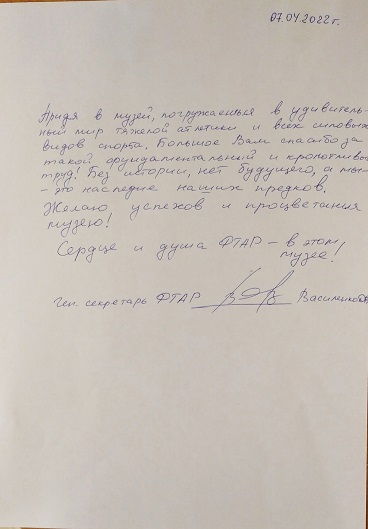 07.04.2022 г.
Придя в музей, погружаешься в удивитель-
ный мир тяжелой атлетики и всех силовых
видов спорта. Большое Вам спасибо за
такой фундаментальный и кропотливый
труд! Без истории, нет будущего, а мы-
- это наследие наших предков.
Желаю успехов и процветания
музею!
Сердце и душа ФТАР – в этом
музее!
Ген. секретарь ФТАР Василенкова